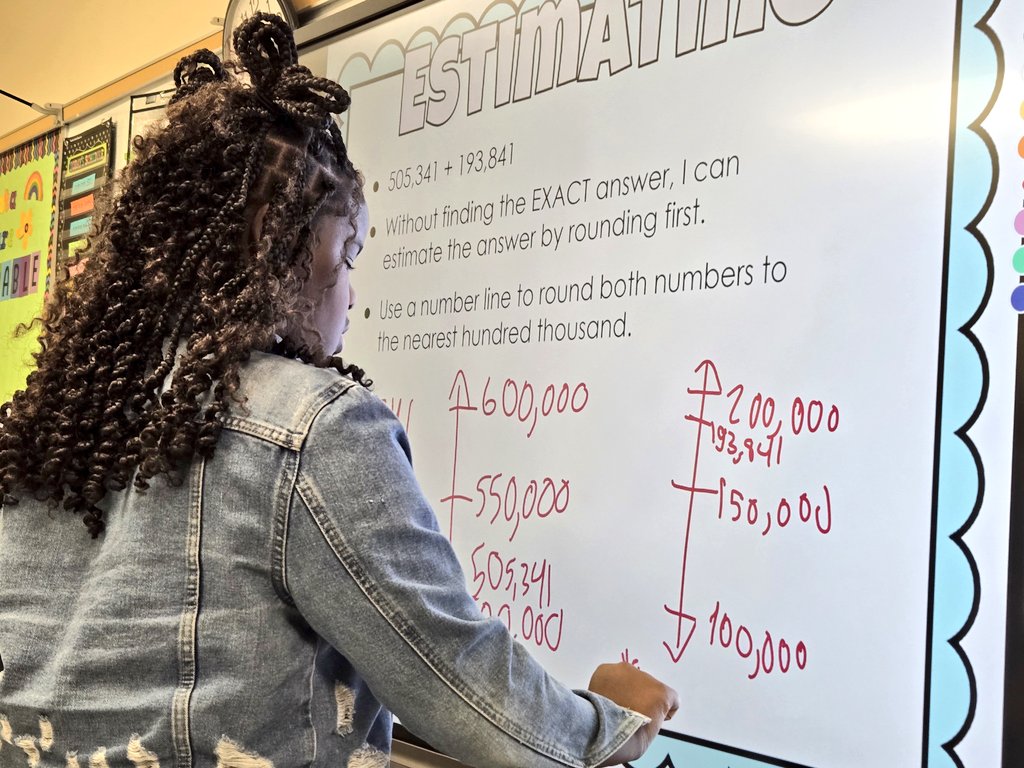 ESTIMATING
505,341 + 193,841
Without finding the EXACT answer, I can
estimate the answer by rounding first.
Use a number line to round both numbers to
the nearest hundred thousand.
600,000
550,000
505,341
200,000
193,841
150,000
100,000
ABLE